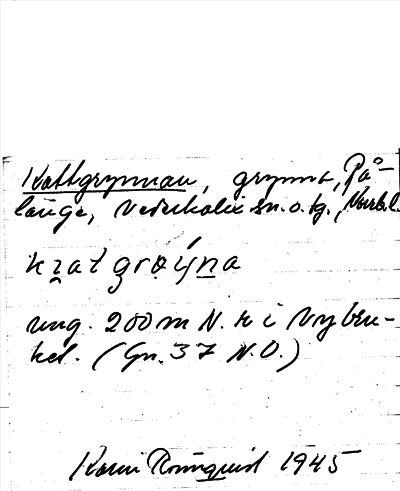 Kattgrynnan, grynna, På-
länge, Nederkalix sn. o. tg., Norrb. l.
kzat groyna
ung. 200 m N. h i Nybru-
ket. (Gn. 37 N.O.)
Karin Rönnquist 1945